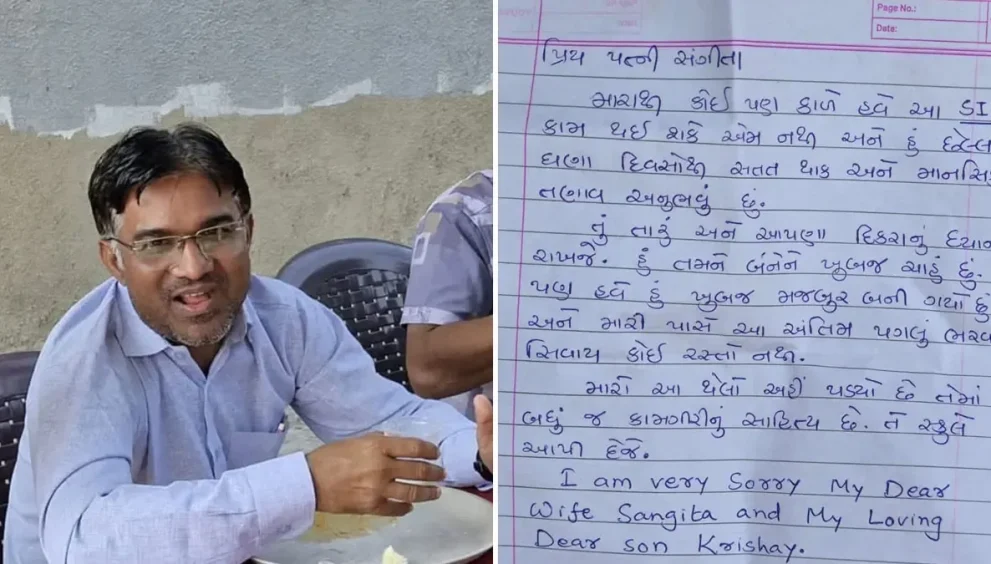 Page No.:
Date:
પ્રિય પત્ની સંગીતા
મારાથી કોઈ પણ કાળે હવે આ SI
કામ થઈ શકે એમ નથી અને હું છેલ્લ
ઘણા દિવસોથી સતત થાક અને માનસિક
તણાવ અનુભવું છું.
તું તારું અને આપણા દિકરાનું ધ્યાન
રાખજે. હું તમને બંનેને ખુબજ ચાહું છું.
પણ હવે હું ખુબજ મજબુર બની ગયો છું
અને મારી પાસે આ અંતિમ પગલું ભરવ
સિવાય કોઈ રસ્તો નથી.
મારો આ થેલો અહીં પડ્યો છે તેમાં
બધું જ કામગીરીનું સાહિત્ય છે. તે સ્કુલે
આપી દેજે.
I am very Sorry My Dear
Wife Sangita and My Loving
Dear son Krishay.